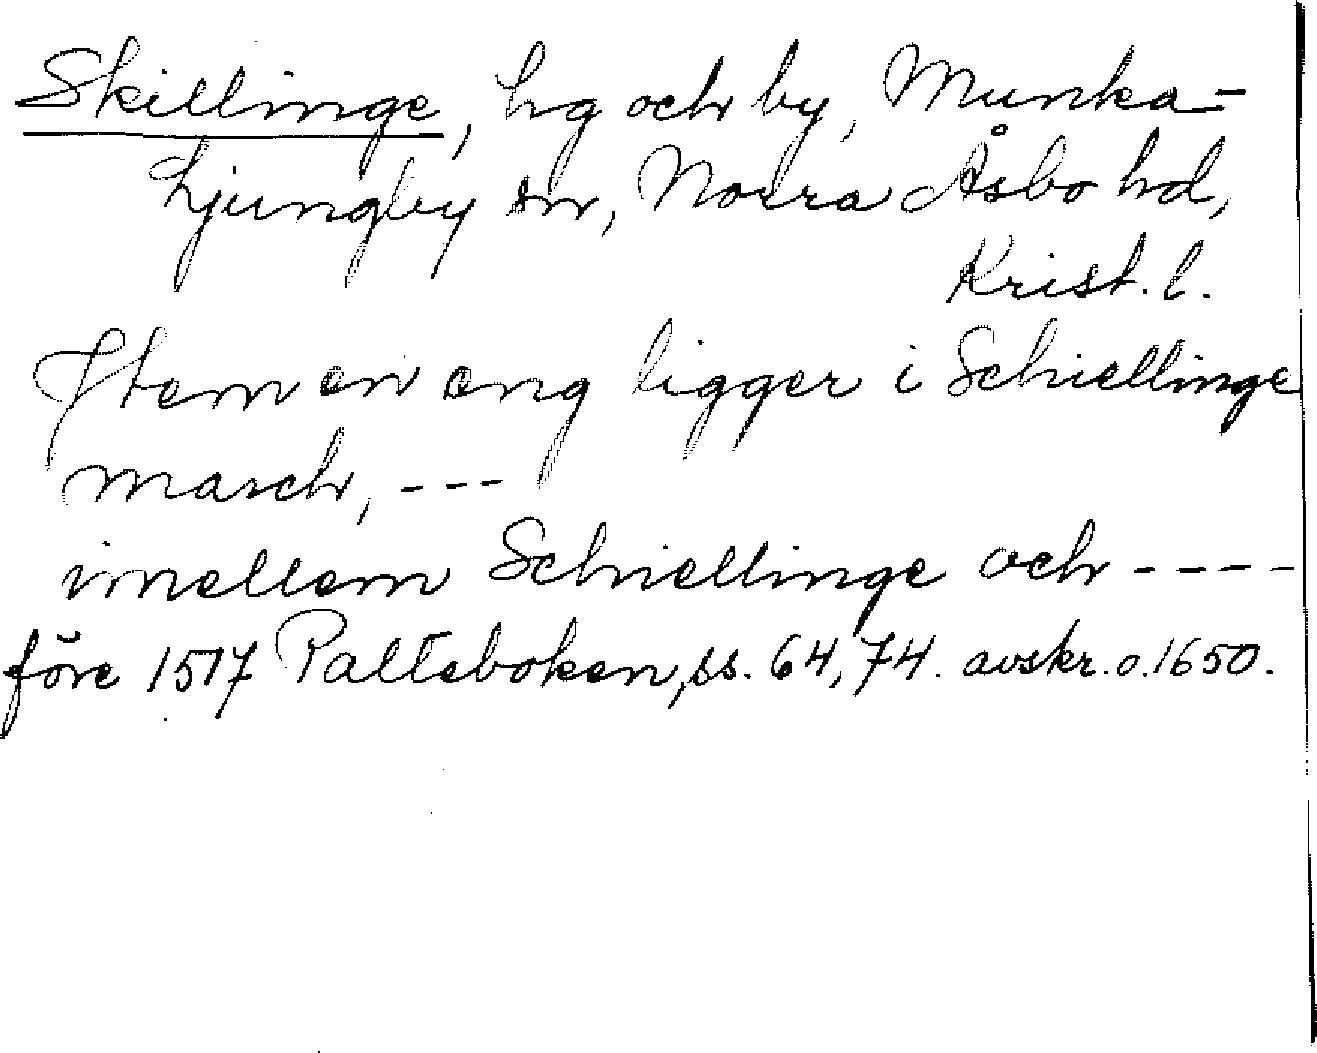 Skillinge, hg och by, Munka-
Ljungby sn, Norra Åsbo hd,
Krist. l.
Item en eng ligger i Schiellinge
march, ---
imellem Schiellinge och ----
före 1517 Palteboken, ss. 64, 74. avskr. o. 1650.